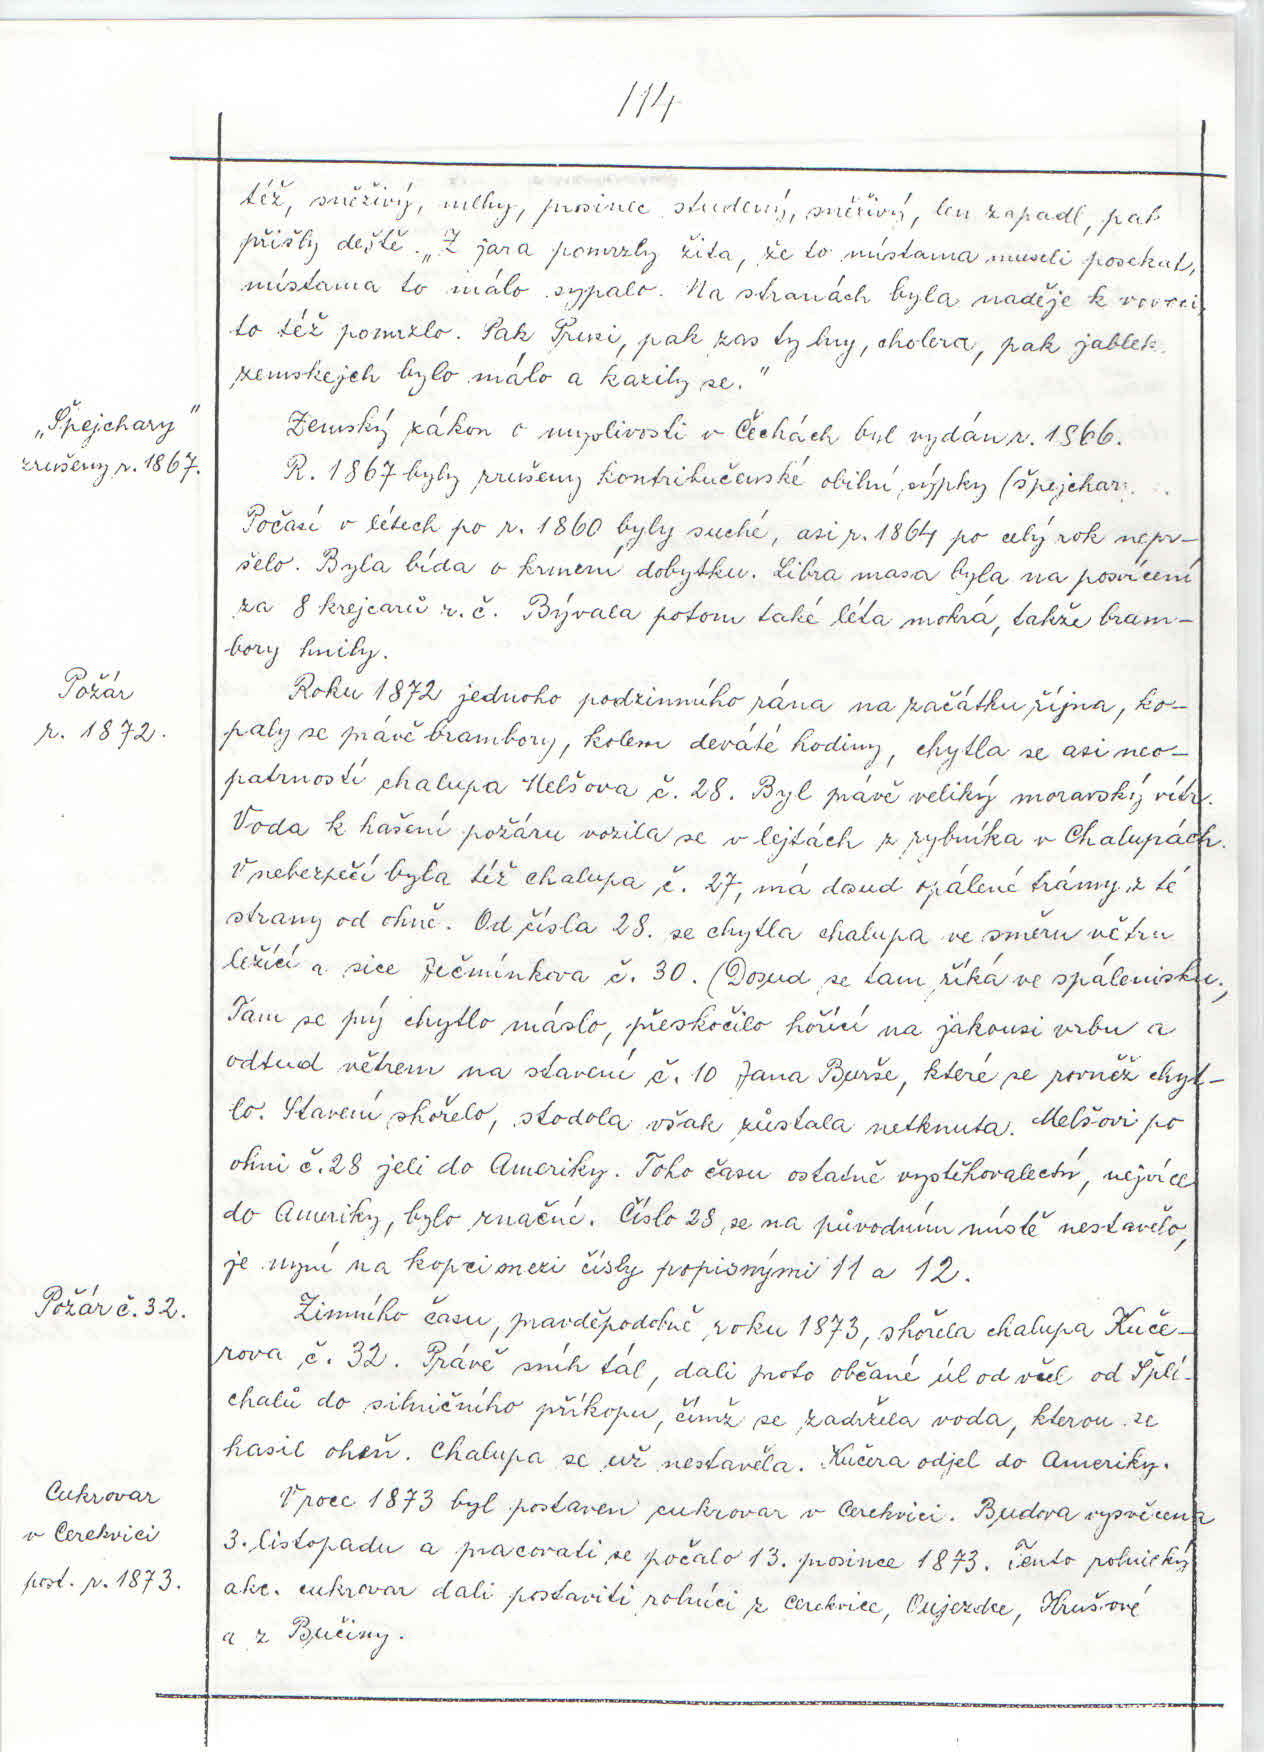 114
též, sněživý, mlhy, prosinec studený, sněživý, len zapadl, pak
přišly deště. „Z jara pomrzly žita, že to místama museli posekat,
místama to málo sypalo. Na stranách byla naděje k ovoci,
to též pomrzlo. Pak Prusi, pak zas tyhny, cholera, pak jablek
zemskejch bylo málo a kazily se."
„Špejchary"
zrušeny r. 1867.
Zemský zákon o myslivosti v Čechách byl vydán r. 1866.
R. 1867 byly zrušeny kontribučenské obilní sýpky (špejchar
Počasí v létech po r. 1860 byly suché, asi r. 1864 po celý rok nepr-
šelo. Byla bída o krmení dobytku. Libra masa byla na posvícení
za 8 krejcarů r. č. Bývala potom také léta mokrá, takže bram-
bory hnily.
Požár
r. 1872.
Roku 1872 jednoho podzimního rána na začátku října, ko-
paly se právě brambory, kolem deváté hodiny, chytla se asi neo-
patrností chalupa Melšova č. 28. Byl právě veliký moravský vítr.
Voda k hašení požáru vozila se v lejtách z rybníka v Chalupách.
V nebezpečí byla též chalupa č. 27, má dosud opálené trámy z té
strany od ohně. Od čísla 28. se chytla chalupa ve směru větru
ležící a sice Ječmínkova č. 30. (Dosud se tam říká ve spálenisku.,
Tam se prý chytlo máslo, přeskočilo hořící na jakousi vrbu a
odtud větrem na stavení č. 10 Jana Burše, které se rovněž chyt-
lo. Stavení shořelo, stodola však zůstala netknuta. Melšovi po
ohni č. 28 jeli do Ameriky. Toho času ostatně vystěhovalectví, nejvíce
do Ameriky, bylo značné. Číslo 28 se na původním místě nestavělo,
je nyní na kopci mezi čísly popisnými 11 a 12.
Požár č. 32.
Zimního času, pravděpodobně roku 1873, shořela chalupa Kuče-
rova č. 32. Právě sníh tál, dali proto občané úl od včel od Šplí-
chalů do silničního příkopu, čímž se zadržela voda, kterou se
hasil oheň. Chalupa se už nestavěla. Kučera odjel do Ameriky.
Cukrovar
v Cerekvici
post. r. 1873.
V roce 1873 byl postaven cukrovar v Cerekvici. Budova vysvěcena
3. listopadu a pracovati se počalo 13. prosince 1873. Tento rolnický
akc. cukrovar dali postaviti rolníci z Cerekvice, Oujezdce, Hrušové
a z Bučiny.